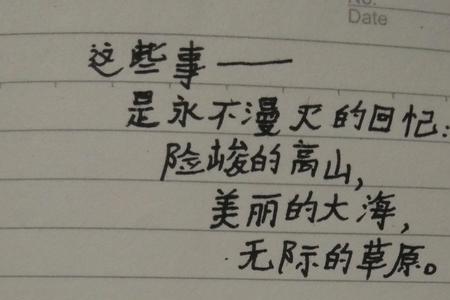 No.
Date
这些事——
是永不漫灭的回忆:
险峻的高山,
美丽的大海,
无际的草原。